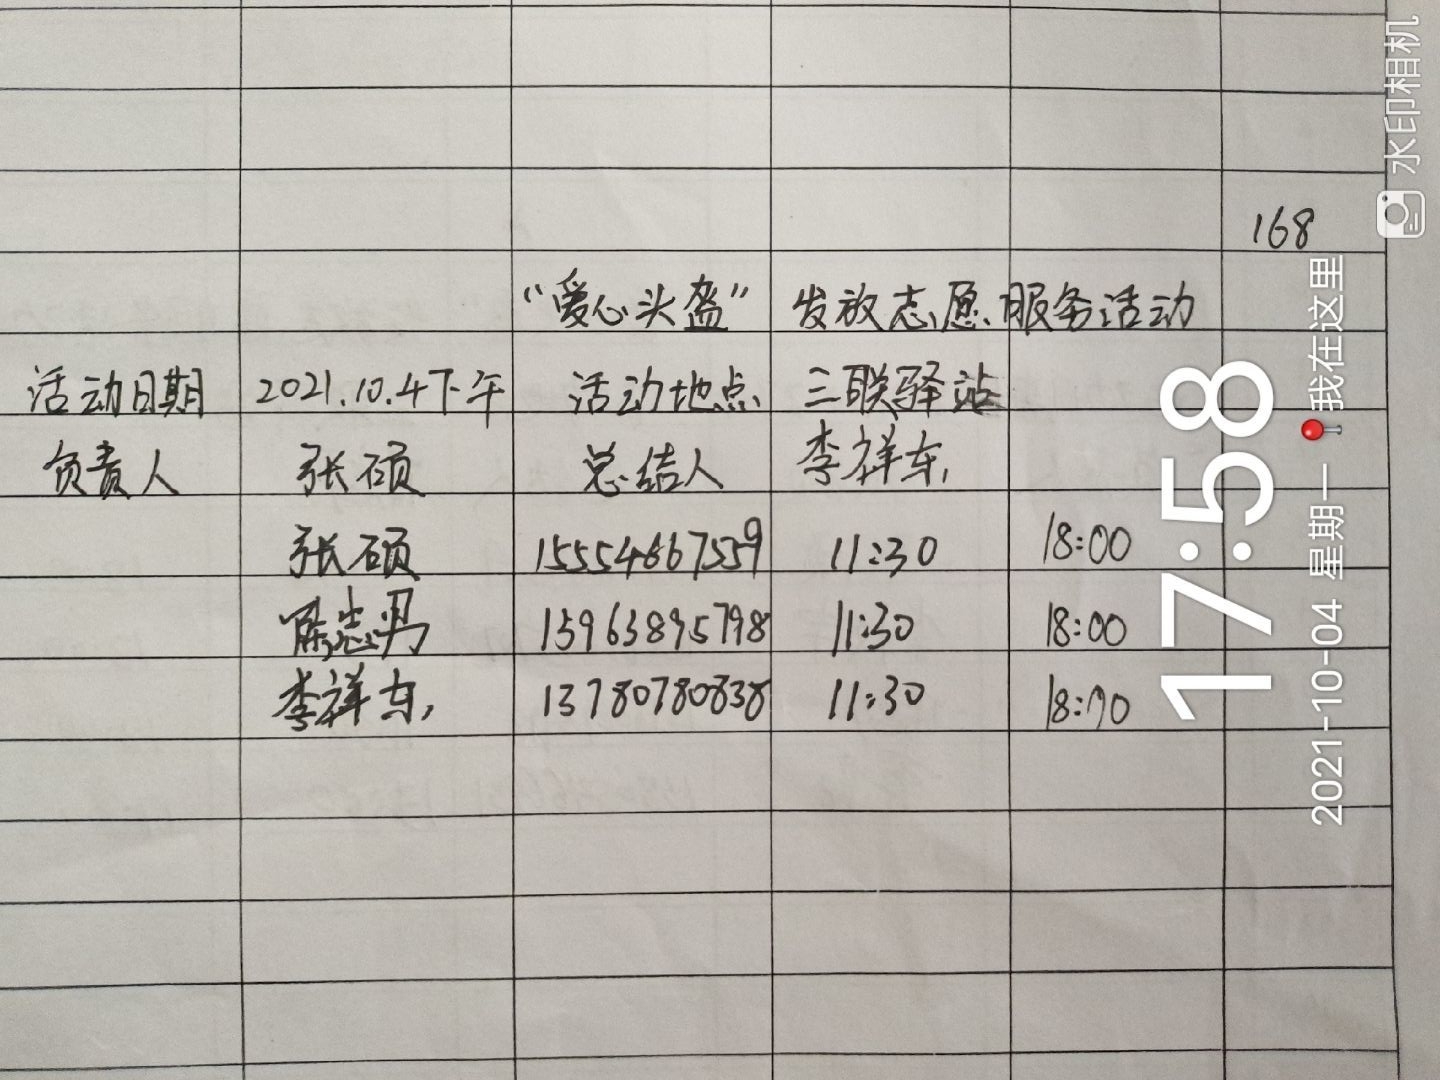 168
“爱心头盔” 发放志愿服务活动
活动日期 2021.10.4下午 活动地点 三联驿站
负责人 张硕 总结人 李祥东
张硕 15554667559 11:30 18:00
陈志男 15963895798 11:30 18:00
李祥东 13780780838 11:30 18:00
17:58
2021-10-04 星期一 📍我在这里
水印相机